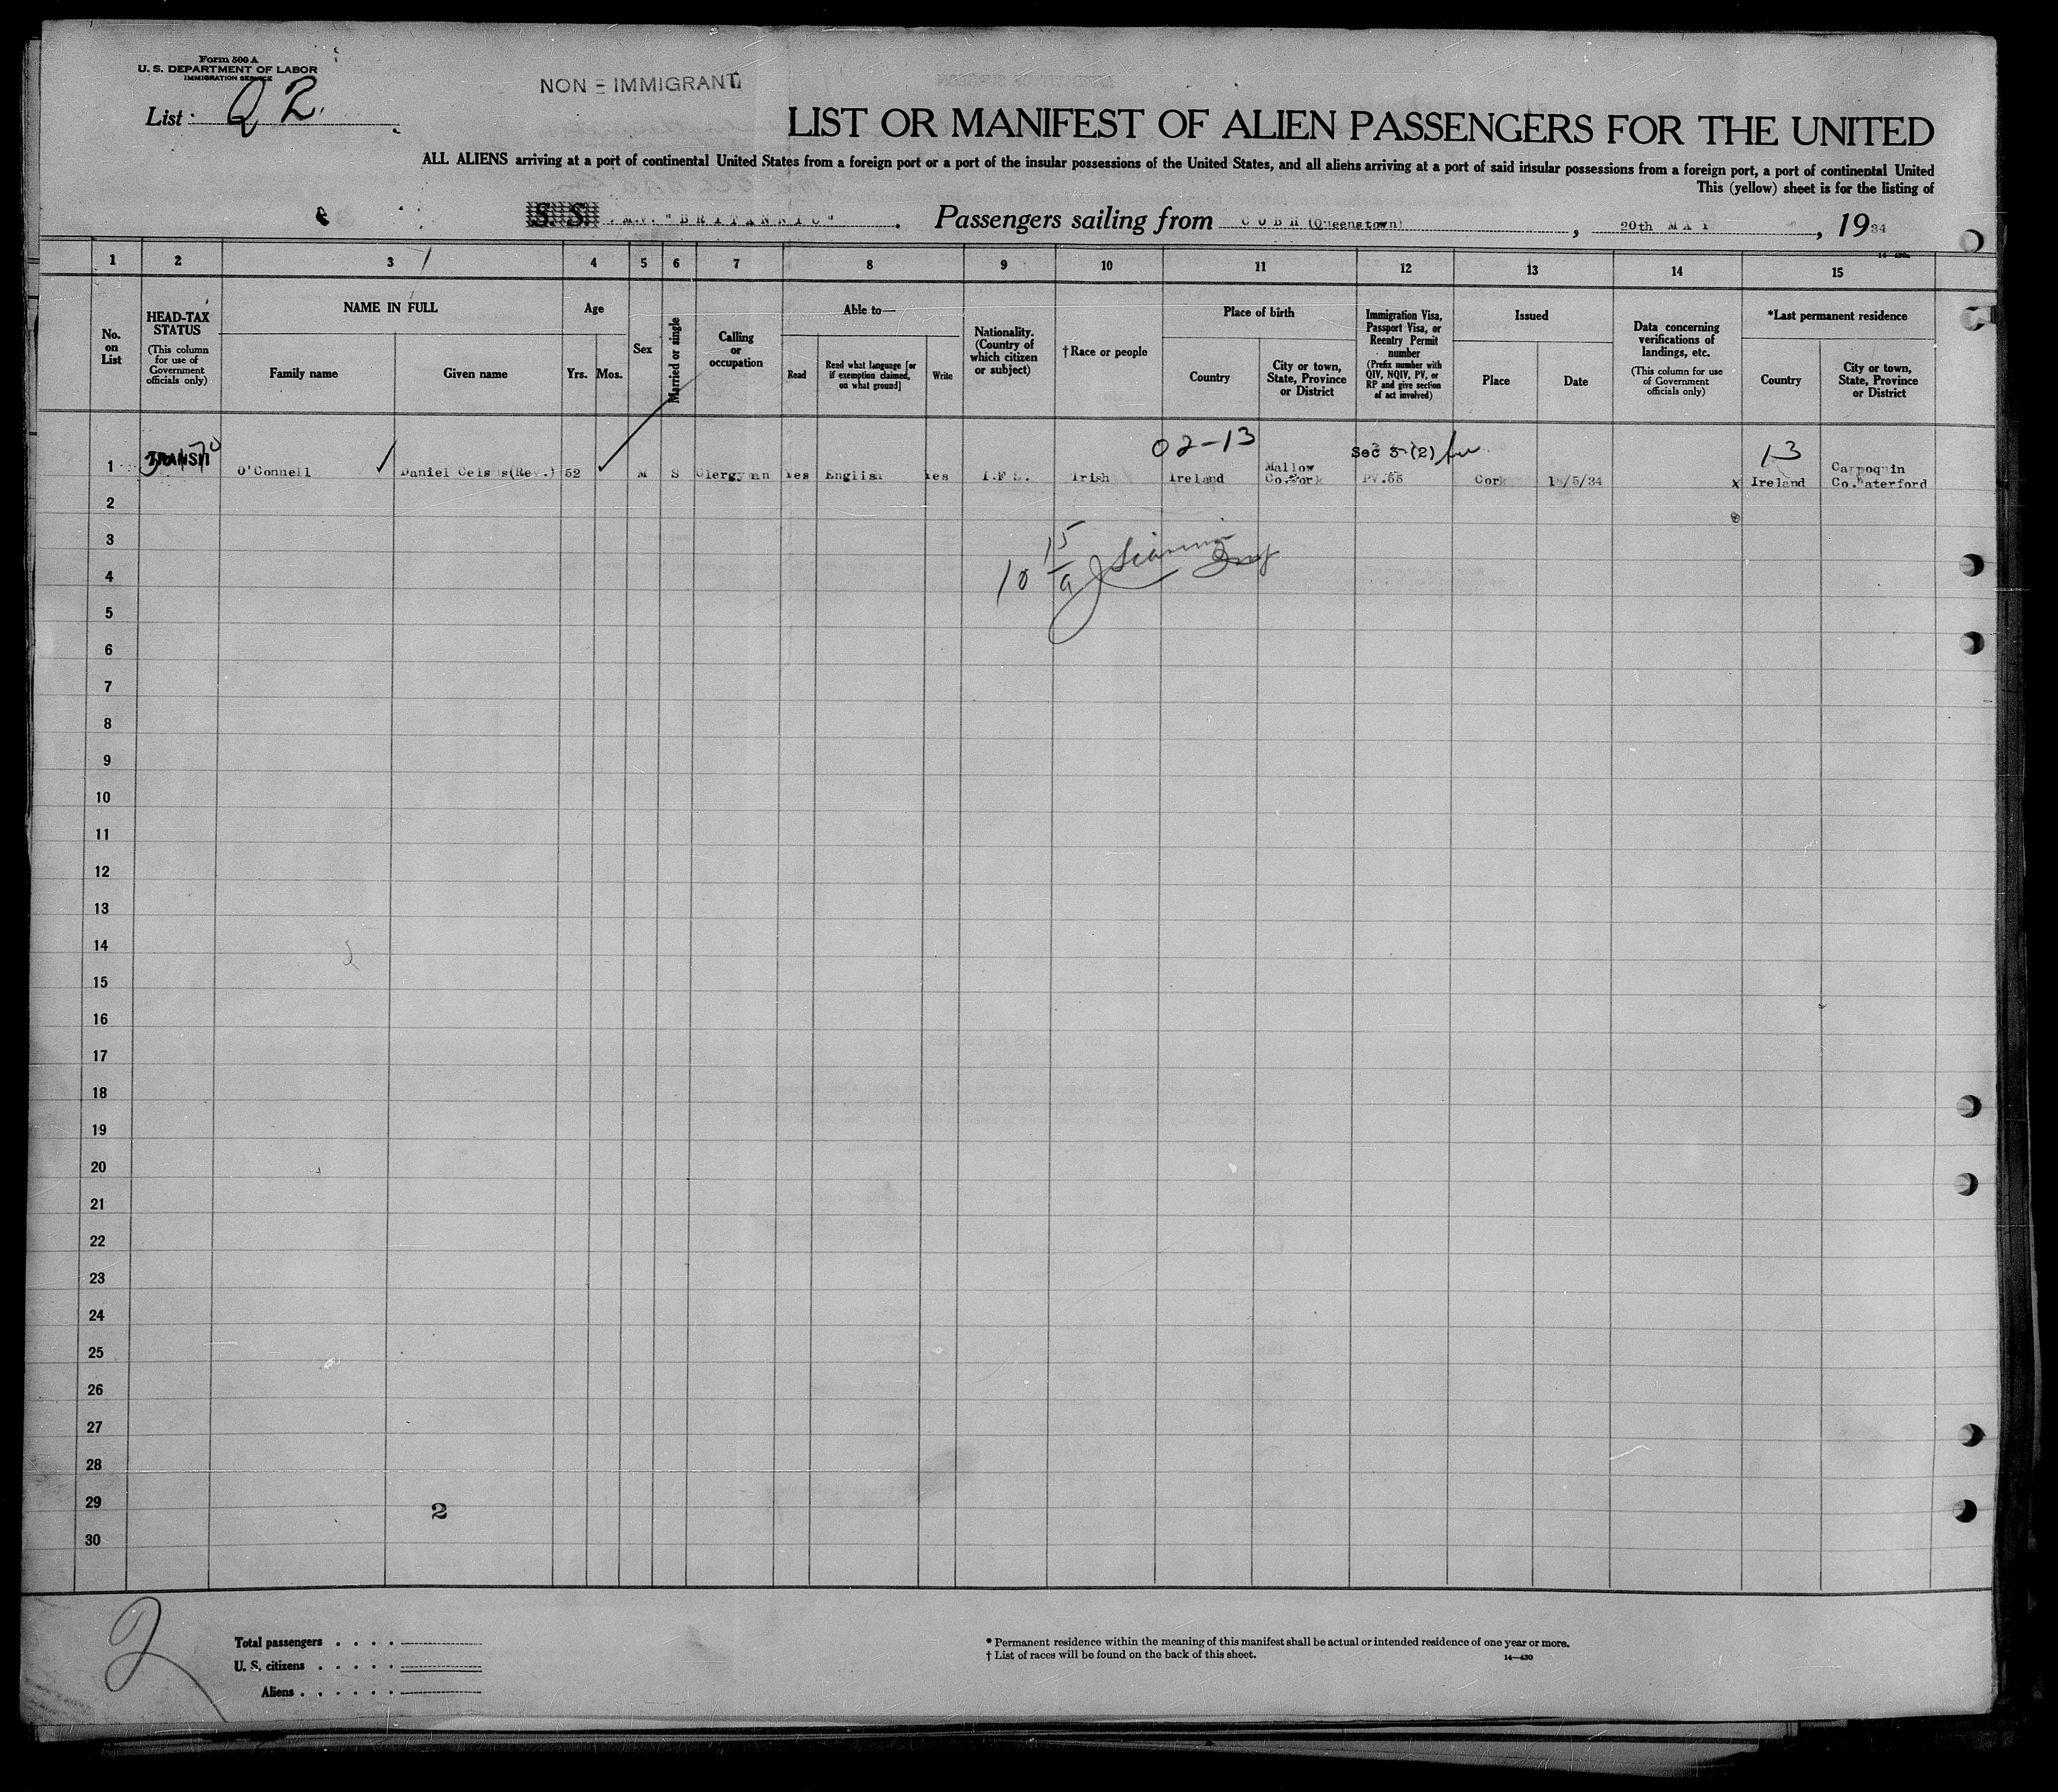 Form 500 A
U. S. DEPARTMENT OF LABOR
IMMIGRATION SERVICE
List
NON - IMMIGRANT
LIST OR MANIFEST OF ALIEN PASSENGERS FOR THE UNITED
ALL ALIENS arriving at a port of continental United States from a foreign port or a port of the insular possessions of the United States, and all aliens arriving at a port of said insular possessions from a foreign port, a port of continental United
This (yellow) sheet is for the listing of
S. S. M.V. "BRITANNIC". Passengers sailing from COBH (Queenstown), 20th MAY, 1934
1 2 3 4 5 6 7 8 9 10 11 12 13 14 15
No. on List
HEAD-TAX STATUS
(This column for use of Government officials only)
NAME IN FULL
Family name
Given name
Age
Yrs.
Mos.
Sex
Married or single
Calling or occupation
Able to—
Read
Read what language [or if exemption claimed, on what ground]
Write
Nationality. (Country of which citizen or subject)
† Race or people
Place of birth
Country
City or town, State, Province or District
Immigration Visa, Passport Visa, or Reentry Permit number
(Prefix number with QIV, NQIV, PV, or RP and give section of act involved)
Issued
Place
Date
Data concerning verifications of landings, etc.
(This column for use of Government officials only)
*Last permanent residence
Country
City or town, State, Province or District
02-13
Sec 3 (2)
13
1 TRANSIT O'Connell Daniel Celsus(Rev.) 52 M S Clergyman Yes English Yes I.F.S. Irish Ireland Mallow Co.Cork PV.55 Cork /5/34 x Ireland Cappoquin Co.Waterford
2
3
15
4
10
5
6
7
8
9
10
11
12
13
14
15
16
17
18
19
20
21
22
23
24
25
26
27
28
29
2
30
2
Total passengers . . . .
U. S. citizens . . . . .
Aliens . . . . . .
* Permanent residence within the meaning of this manifest shall be actual or intended residence of one year or more.
† List of races will be found on the back of this sheet.
14—430